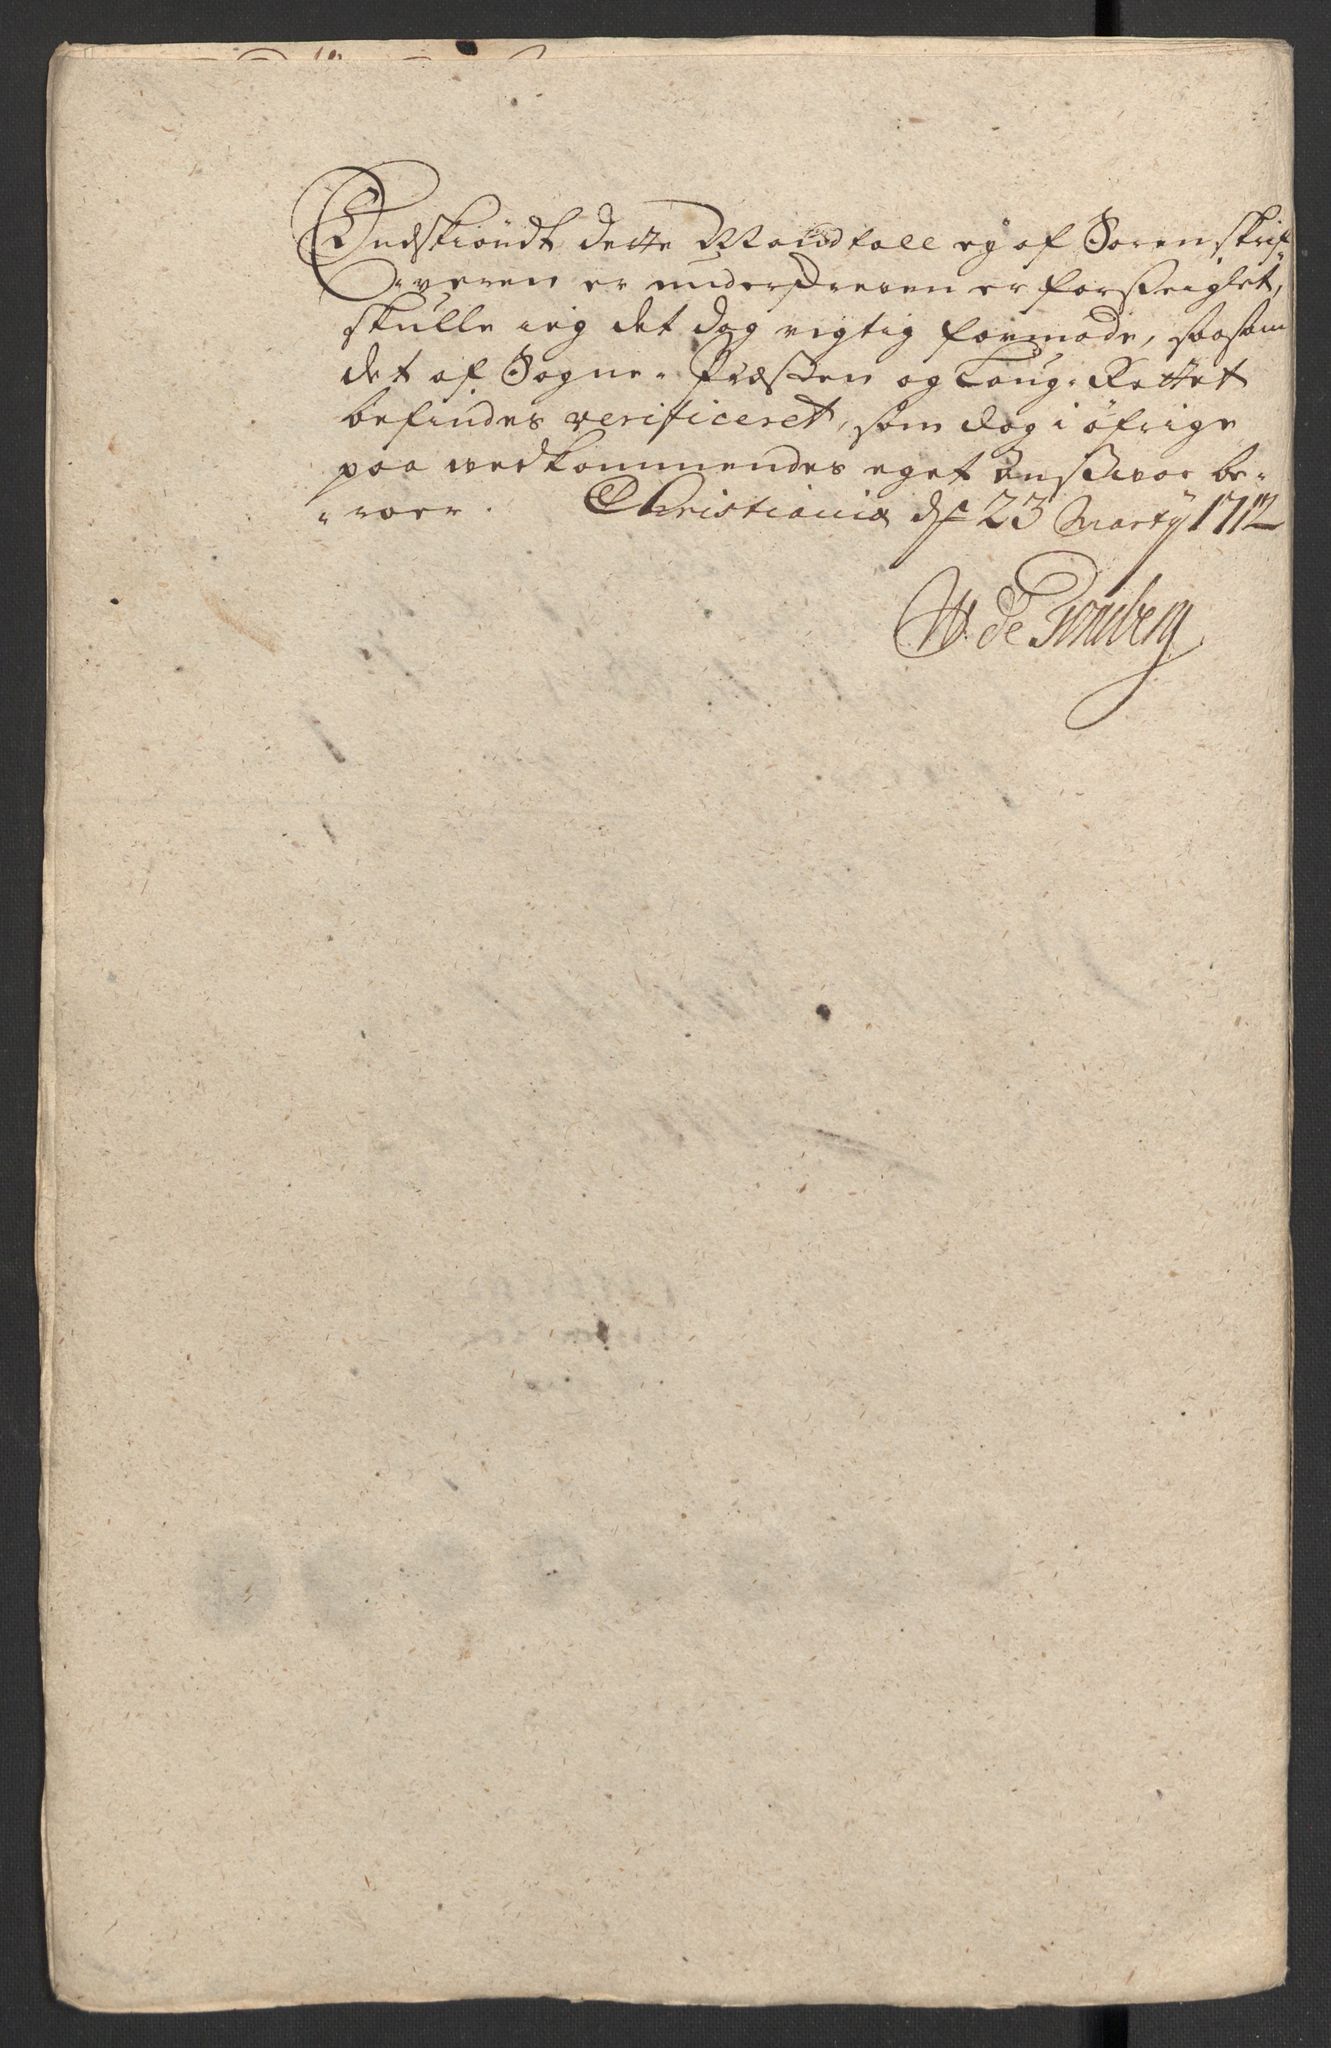 Endskiöndt dette Mandtall ey af Sorenskrif-
-veren er underskreven er forseiglet,
skulle ieg det dog rigtig formode, saasom
det af Sogne-Præsten og Laug-Rettet
befindes verificeret, som dog i öfrige
paa wedkommendes eget ansvar be-
-roer. Christiania dend 23 Marty 1712
W de Tonsberg